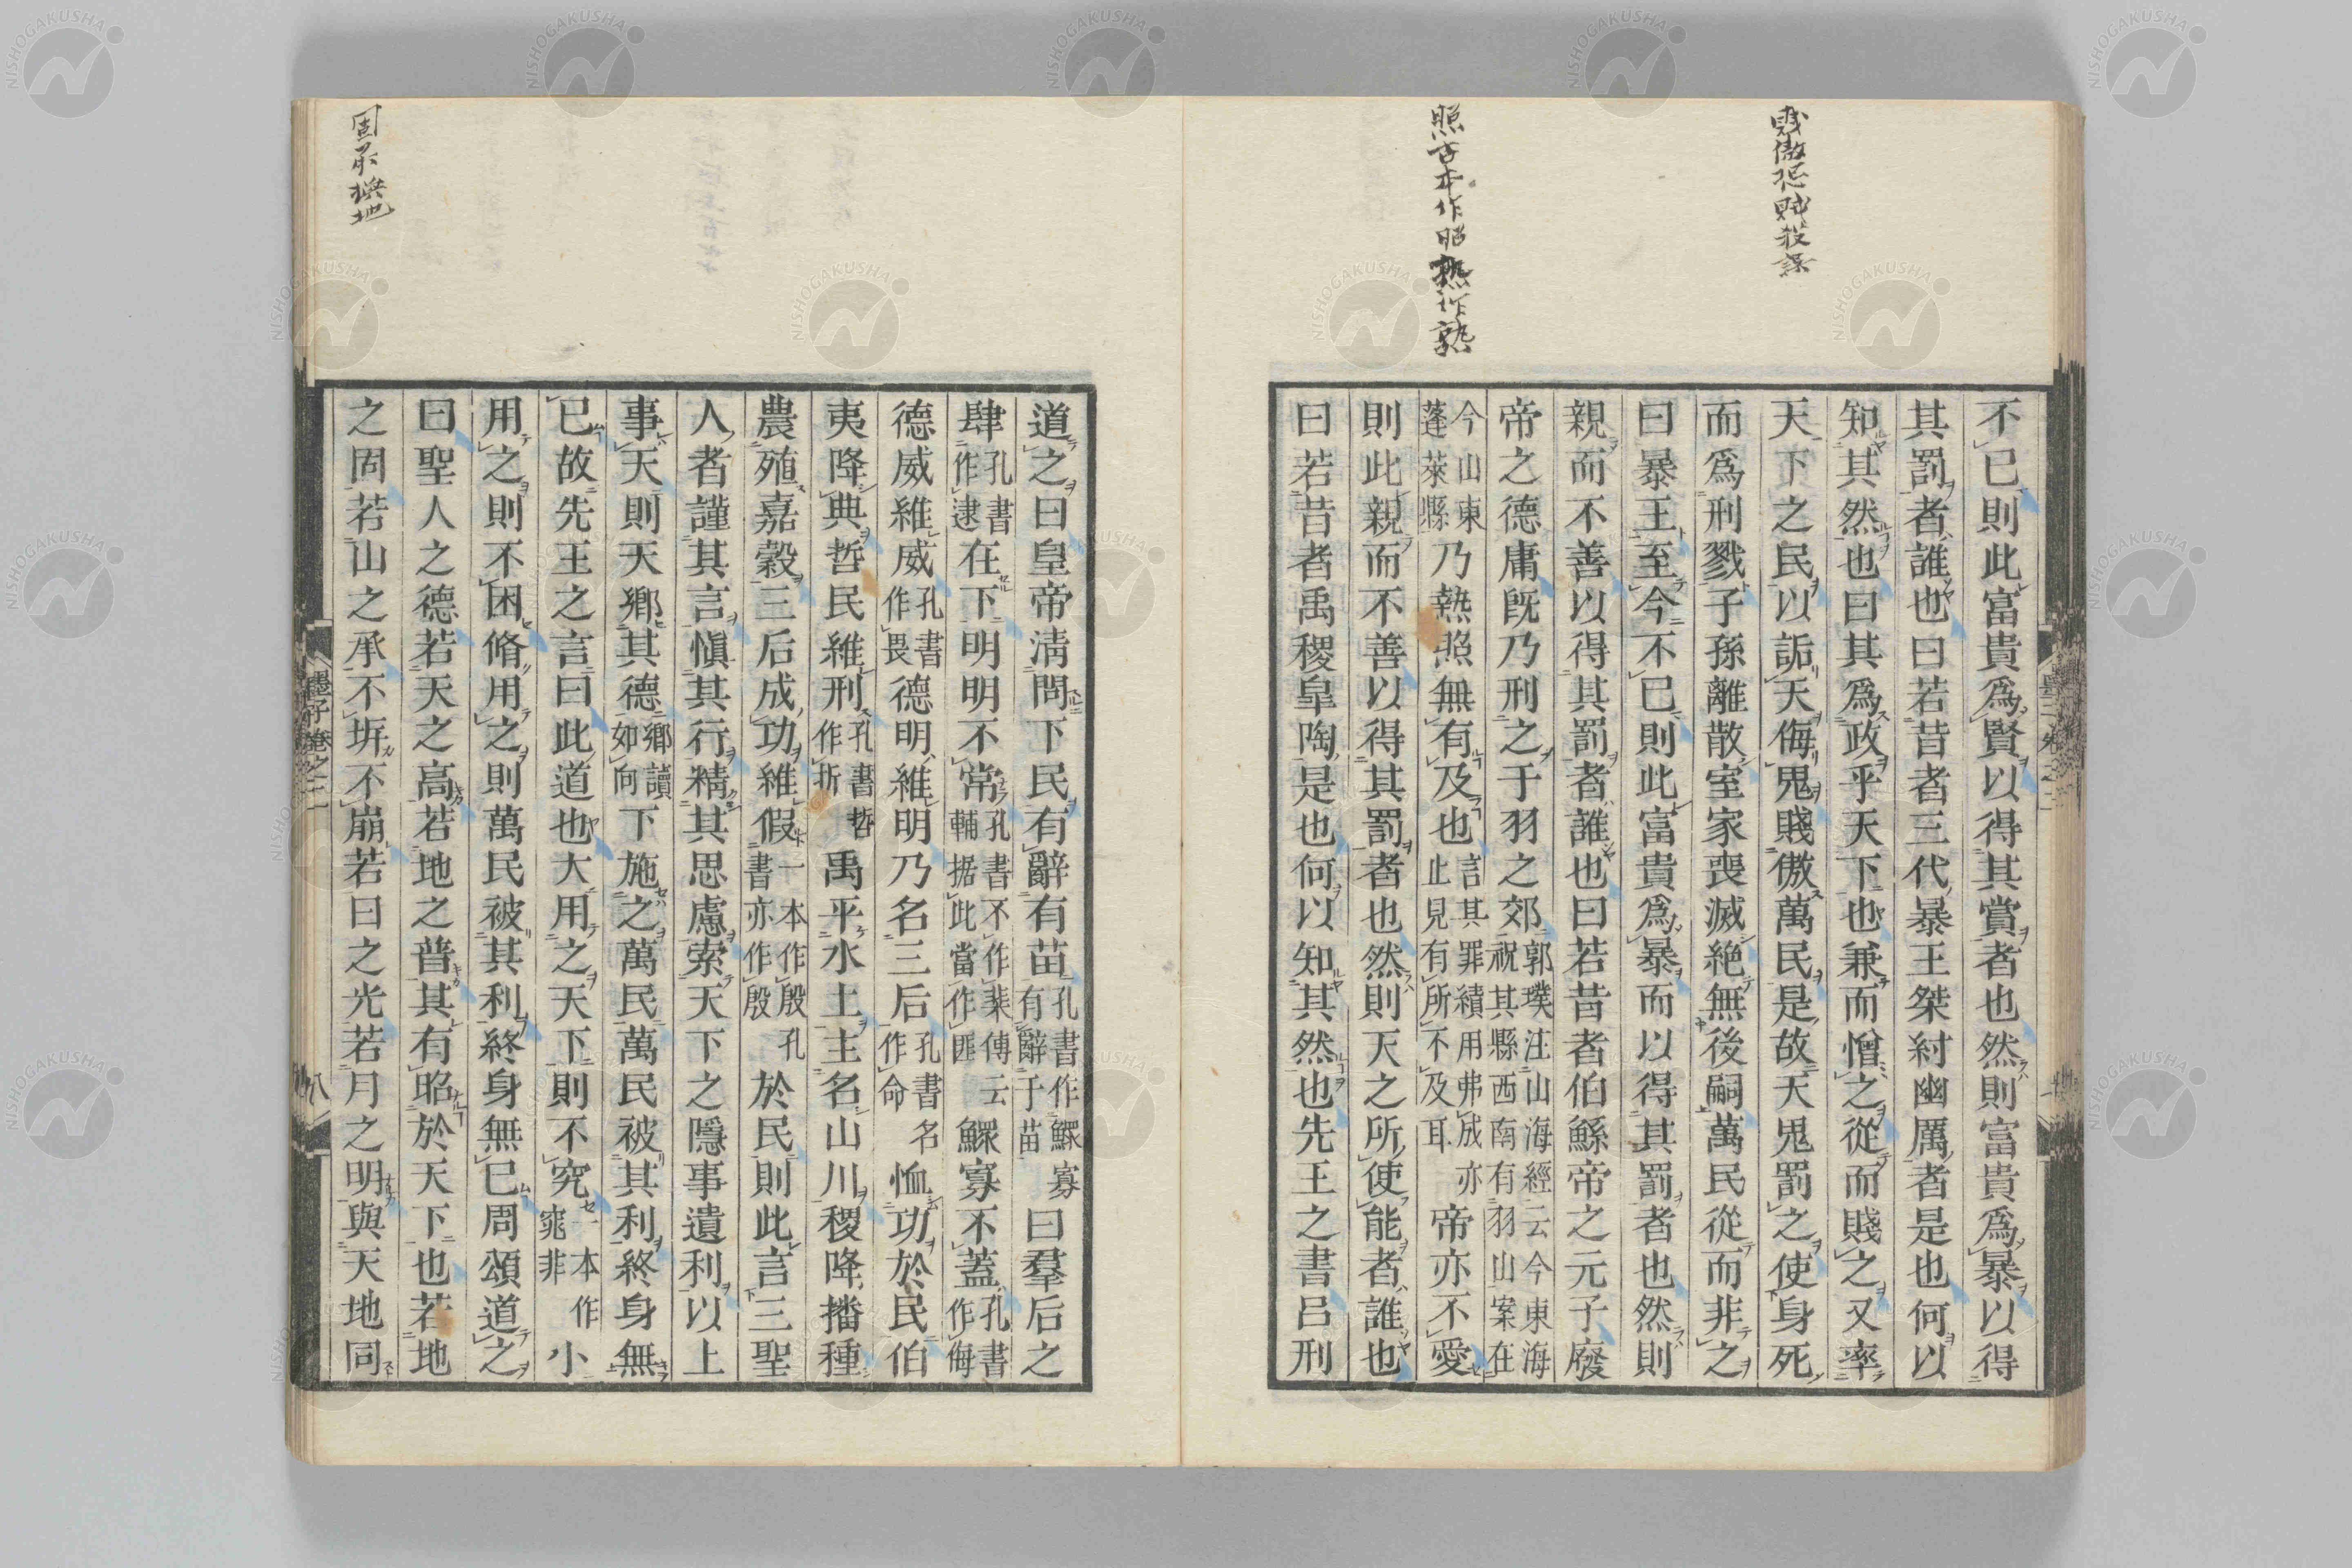 賤傲恐賊殺誤
照古本作昭𤍠作熟
不已則此富貴爲賢以得其賞者也然則富貴爲暴以得
其罰者誰也曰若昔者三代暴王桀紂幽厲者是也何以
知其然也曰其爲政乎天下也兼而憎之從而賤之又率
天下之民以詬天侮鬼賤傲萬民是故天鬼罰之使身死
而爲刑戮子孫離散室家喪滅絕無後嗣萬民從而非之
曰暴王至今不已則此富貴爲暴而以得其罰者也然則
親而不善以得其罰者誰也曰若昔者伯鯀帝之元子廢
帝之德庸旣乃刑之于羽之郊郭璞注山海經云今東海祝其縣西南有羽山案在
今山東蓬萊縣乃熱照無有及也言其罪績用弗成亦止見有所不及耳帝亦不愛
則此親而不善以得其罰者也然則天之所使能者誰也
曰若昔者禹稷皐陶是也何以知其然也先王之書呂刑
道之曰皇帝淸問下民有辭有苗孔書作鰥寡有辭于苗曰羣后之
肆孔書作逮在下明明不常孔書不作棐傳云輔据此當作匪鰥寡不蓋孔書作侮
德威維威孔書作畏德明維明乃名三后孔書名作命恤功於民伯
夷降典哲民維刑孔書哲作折禹平水土主名山川稷降播種
農殖嘉穀三后成功維假一本作殷孔書亦作殷於民則此言三聖
人者謹其言愼其行精其思慮索天下之隱事遺利以上
事天則天鄉其德鄉讀如向下施之萬民萬民被其利終身無
已故先王之言曰此道也大用之天下則不究一本作窕非小
用之則不困脩用之則萬民被其利終身無已周頌道之
曰聖人之德若天之高若地之普其有昭於天下也若地
之固若山之承不坼不崩若日之光若月之明與天地同
墨子卷之二
八